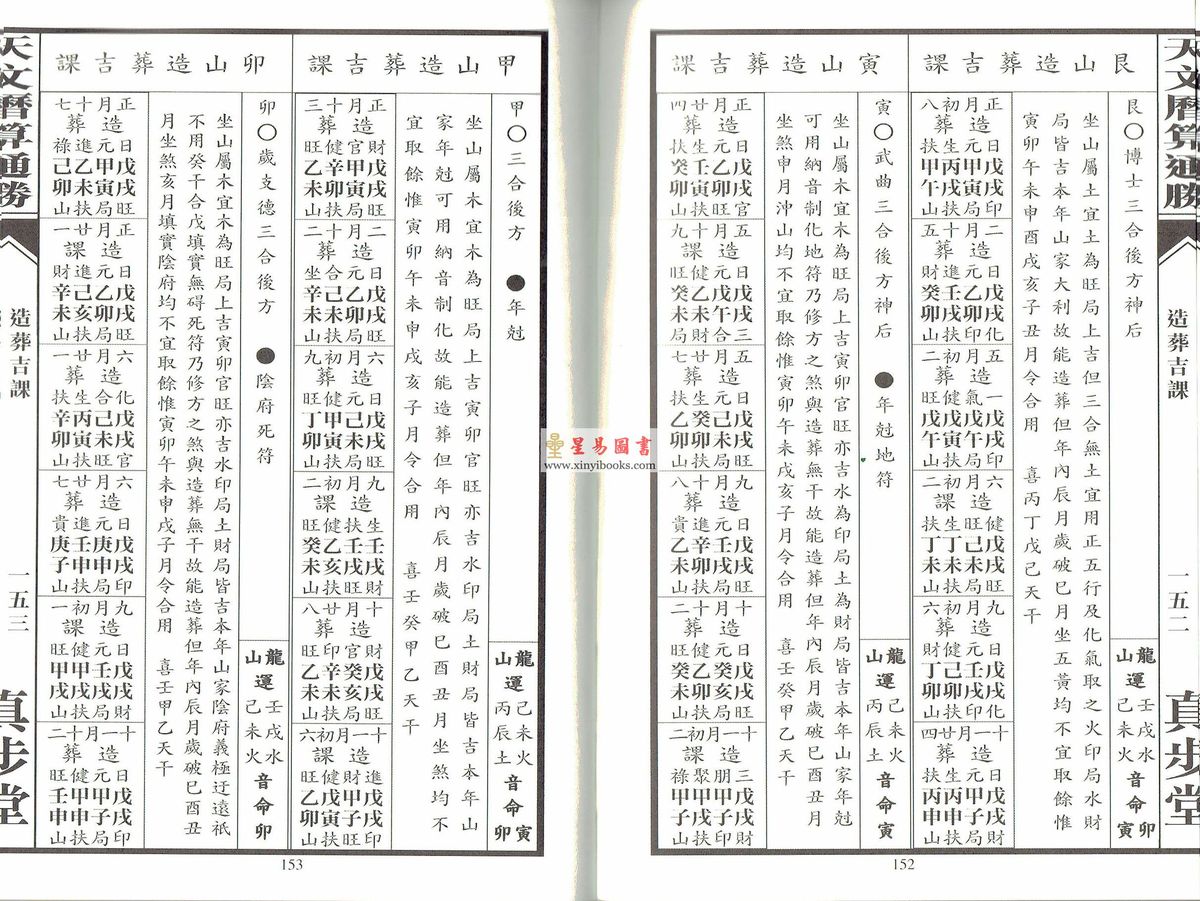 天文曆算通勝
造葬吉課
一五二
真步堂
艮山造葬吉課
艮○博士三合後方神后
龍山運 壬戌水 己未火 音命卯寅
坐山屬土宜土為旺局上吉但三合無土宜用正五行及化氣取之火印局水財
局皆吉本年山家大利故能造葬但年內辰月歲破巳月坐五黃均不宜取餘惟
寅卯午未申酉戌亥子丑月令合用 喜丙丁戊己天干
正月初八
造葬
日元生扶
戊甲丙甲
戌寅戌午
印局扶山
二月十五
造葬
日元進旺
戊乙壬癸
戌卯戌卯
化印扶山
五月初二
一氣健旺
戊戊戊戊
戌午寅午
印局扶山
六月初二
造課
健元生扶
戊己丁丁
戌未未未
旺局扶山
九月初六
造葬
日元健財
戊壬己丁
戌戌卯卯
化印扶山
十一月廿四
造葬
日元生扶
戊甲丙丙
戌子申申
印局扶山
寅山造葬吉課
寅○武曲三合後方神后 ●年尅地符
龍山運 己未火 丙辰土 音命寅
坐山屬木宜木為旺局上吉寅卯官旺亦吉水為印局土為財局皆吉本年山家年尅
可用納音制化地符乃修方之煞與造葬無干故能造葬但年內辰月歲破巳酉丑月
坐煞申月沖山均不宜取餘惟寅卯午未戌亥子月令合用 喜壬癸甲乙天干
正月廿四
造葬
日元生扶
戊甲壬癸
戌寅戌卯
官旺扶山
五月十九
造課
日元健旺
戊戊乙癸
戌午未未
三合財局
五月廿七
造葬
三元生扶
戊戊癸乙
戌午卯卯
合局扶山
九月十八
造葬
日元進貴
戊壬辛乙
戌戌卯未
旺局扶山
十月二十
造葬
日元健旺
戊癸乙癸
戌亥未卯
旺局扶山
十一月初二
造課
三朋聚祿
戊甲甲甲
戌子戌子
印局扶山
152
甲山造葬吉課
甲○三合後方 ●年尅
龍山運 己未火 丙辰土 音命寅卯
坐山屬木宜木為旺局上吉寅卯官旺亦吉水印局土財局皆吉本年山
家年尅可用納音制化故能造葬但年內辰月歲破巳酉丑月坐煞均不
宜取餘惟寅卯午未申戌亥子月令合用 喜壬癸甲乙天干
正月十三
造葬
財官健旺
戊甲辛乙
戌寅卯未
旺局扶山
二月二十
造葬
日元合坐
戊乙己辛
戌卯未未
旺局扶山
六月初九
造葬
日元健旺
戊己甲丁
戌未寅卯
旺局扶山
九月初二
造課
生扶健旺
戊壬乙癸
戌戌亥未
財局扶山
十月廿八
造葬
日官印旺
戊癸癸乙
戌亥卯未
旺局扶山
十一月初六
造課
進財健旺
戊甲戊乙
戌子寅卯
旺印扶山
卯山造葬吉課
卯○歲支德三合後方 ●陰府死符
龍山運 壬戌水 己未火 音命卯
坐山屬木宜木為旺局上吉寅卯官旺亦吉水印局土財局皆吉本年山家陰府義極迂遠祇
不用癸干合戊填實無碍死符乃修方之煞與造葬無干故能造葬但年內辰月歲破巳酉丑
月坐煞亥月填實陰府均不宜取餘惟寅卯午未申戌子月令合用 喜壬甲乙天干
正月十七
造葬
日元進祿
戊甲乙己
戌寅未卯
旺局扶山
正月廿一
造課
日元進財
戊乙己辛
戌卯亥未
旺局扶山
六月廿一
造葬
化合生扶
戊己丙辛
戌未寅卯
官旺扶山
六月廿七
造葬
日元進貴
戊庚壬庚
戌申申子
印局扶山
九月初一
造課
日元健旺
戊壬甲甲
戌戌戌戌
財局扶山
十一月二十
造葬
日元健旺
戊甲甲壬
戌子申申
印局扶山
天文曆算通勝
造葬吉課
一五三
真步堂
153
星易圖書
www.xinyibooks.com